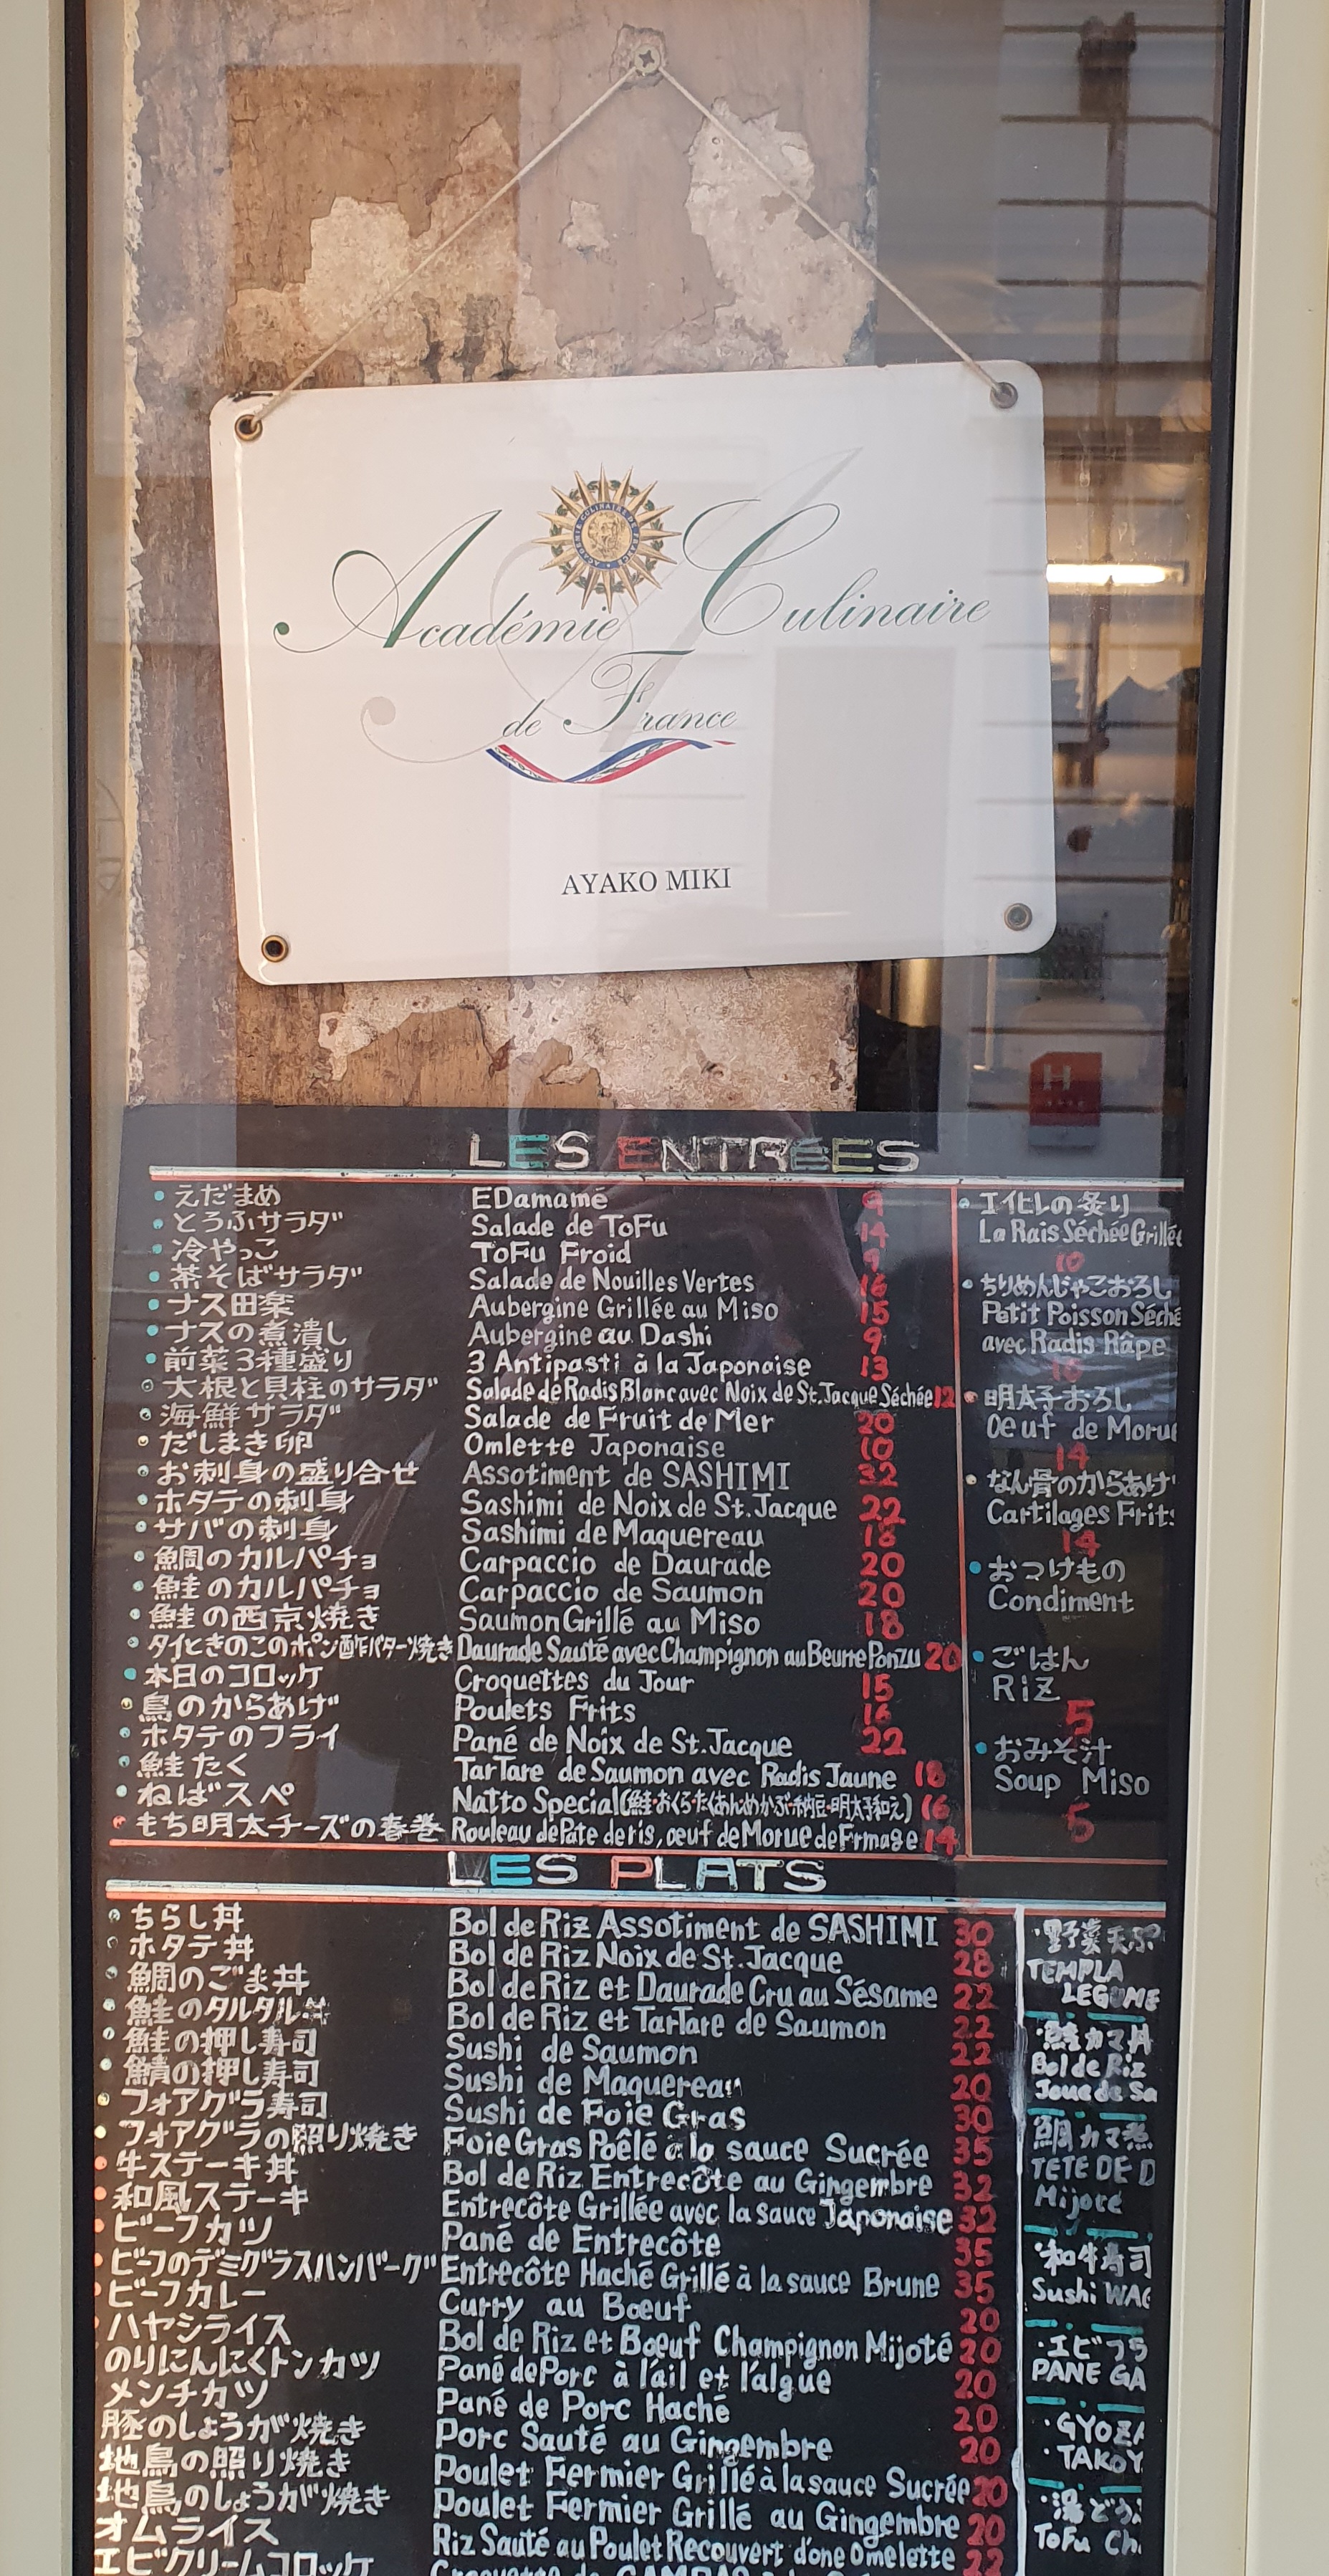 Académie Culinaire
de France
AYAKO MIKI
LES ENTRÉES
えだまめ EDamamé 9
とうふサラダ Salade de ToFu 14
冷やっこ ToFu Froid 9
茶そばサラダ Salade de Nouilles Vertes 16
ナス田楽 Aubergine Grillée au Miso 15
ナスの煮潰し Aubergine au Dashi 9
前菜3種盛り 3 Antipasti à la Japonaise 13
大根と貝柱のサラダ Salade de Radis Blanc avec Noix de St.Jacque Séchée 12
海鮮サラダ Salade de Fruit de Mer 20
だしまき卵 Omlette Japonaise 10
お刺身の盛り合せ Assotiment de SASHIMI 32
ホタテの刺身 Sashimi de Noix de St.Jacque 22
サバの刺身 Sashimi de Maquereau 18
鯛のカルパチョ Carpaccio de Daurade 20
鮭のカルパチョ Carpaccio de Saumon 20
鮭の西京焼き Saumon Grillé au Miso 18
タイときのこのポン酢バター焼き Daurade Sauté avec Champignon au Beurre Ponzu 20
本日のコロッケ Croquettes du Jour 15
鳥のからあげ Poulets Frits 16
ホタテのフライ Pané de Noix de St.Jacque 22
鮭たく TarTare de Saumon avec Radis Jaune 18
ねばスペ Natto Special(鮭・おくら・たくあん・めかぶ・納豆・明太子和え) 16
もち明太チーズの春巻 Rouleau de Pate de ris, œuf de Morue de Frmage 14
エイヒレの炙り
La Rais Séchée Grillée
10
ちりめんじゃこおろし
Petit Poisson Séché
avec Radis Râpe
明太子おろし
Oeuf de Morue
14
なん骨のからあげ
Cartilages Frits
14
おつけもの
Condiment
ごはん
Riz
5
おみそ汁
Soup Miso
5
LES PLATS
ちらし丼 Bol de Riz Assotiment de SASHIMI 30
ホタテ丼 Bol de Riz Noix de St.Jacque 28
鯛のごま丼 Bol de Riz et Daurade Cru au Sésame 22
鮭のタルタル丼 Bol de Riz et TarTare de Saumon 22
鮭の押し寿司 Sushi de Saumon 22
鯖の押し寿司 Sushi de Maquereau 20
フォアグラ寿司 Sushi de Foie Gras 30
フォアグラの照り焼き Foie Gras Poêlé à la sauce Sucrée 35
牛ステーキ丼 Bol de Riz Entrecôte au Gingembre 32
和風ステーキ Entrecôte Grillée avec la sauce Japonaise 32
ビーフカツ Pané de Entrecôte 35
ビーフのデミグラスハンバーグ Entrecôte Haché Grillé à la sauce Brune 35
ビーフカレー Curry au Bœuf 20
ハヤシライス Bol de Riz et Bœuf Champignon Mijoté 20
のりにんにくトンカツ Pané de Porc à l'ail et l'algue 20
メンチカツ Pané de Porc Haché 20
豚のしょうが焼き Porc Sauté au Gingembre 20
地鳥の照り焼き Poulet Fermier Grillé à la sauce Sucrée 20
地鳥のしょうが焼き Poulet Fermier Grillé au Gingembre 20
オムライス Riz Sauté au Poulet Recouvert d'one Omelette 22
エビクリームコロッケ
野菜天ぷ
TEMPLA
LEGUME
鮭カマ丼
Bol de Riz
Joue de Sa
鯛カマ煮
TETE DE D
Mijoté
和牛寿司
Sushi WAG
エビフラ
PANE GA
GYOZA
TAKOY
湯どうふ
ToFu Ch